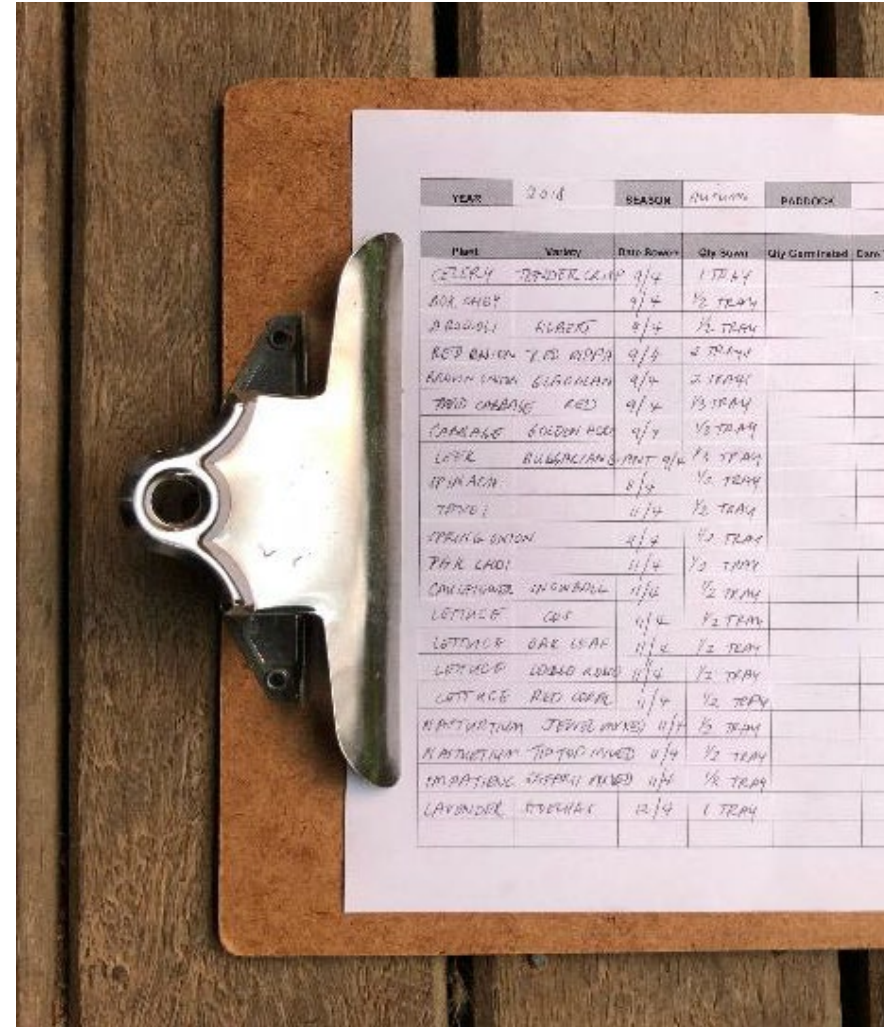 YEAR 2018 SEASON AUTUMN PADDOCK
Plant Variety Date Sown Qty Sown Qty Germinated Date
CELERY TENDER CRISP 9/4 1 TRAY
BOK CHOY 9/4 1/2 TRAY
9/4 1/2 TRAY
RED ONION RED 9/4 2 TRAYS
BROWN ONION 9/4 2 TRAYS
CABBAGE RED 9/4 1/3 TRAY
CABBAGE GOLDEN 9/4 1/3 TRAY
LEEK 9/4 1/3 TRAY
SPINACH 1/2 TRAY
11/4 1/2 TRAY
SPRING ONION 9/4 1/2 TRAY
PAK CHOI 11/4 1/2 TRAY
CAULIFLOWER SNOWBALL 11/4 1/2 TRAY
LETTUCE COS 11/4 1/2 TRAY
LETTUCE OAK LEAF 11/4 1/2 TRAY
LETTUCE 11/4 1/2 TRAY
LETTUCE RED CORAL 11/4 1/2 TRAY
NASTURTIUM JEWEL MIXED 11/4 1/2 TRAY
NASTURTIUM TIP TOP MIXED 11/4 1/2 TRAY
IMPATIENS MIXED 11/4 1/2 TRAY
LAVENDER 12/4 1 TRAY